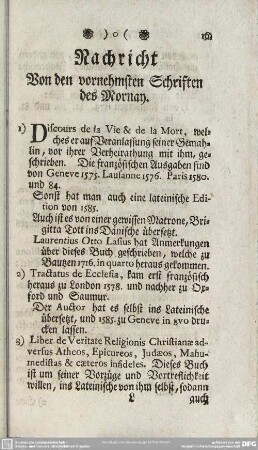 ) o (
Nachricht
Von den vornehmsten Schriften
des Mornay.
1) Discours de la Vie & de la Mort, wel-
ches er auf Veranlassung seiner Gemah-
lin, vor ihrer Verheirathung mit ihm, ge-
schrieben. Die französischen Ausgaben sind
von Geneve 1575. Lausanne 1576. Paris 1580.
und 84.
Sonst hat man auch eine lateinische Edi-
tion von 1585.
Auch ist es von einer gewissen Matrone, Bri-
gitta Tott ins Dänische übersetzt.
Laurentius Otto Lasius hat Anmerkungen
über dieses Buch geschrieben, welche zu
Bautzen 1716. in quarto heraus gekommen.
2) Tractatus de Ecclesia, kam erst französisch
heraus zu London 1578. und nachher zu Ox-
ford und Saumur.
Der Auctor hat es selbst ins Lateinische
übersetzt, und 1585. zu Geneve in 8vo dru-
cken lassen.
3) Liber de Veritate Religionis Christianæ ad-
versus Atheos, Epicureos, Judæos, Mahu-
medistas & cæteros infideles. Dieses Buch
ist um seiner Vorzüge und Vortreflichkeit
willen, ins Lateinische von ihm selbst, sodann
L auch